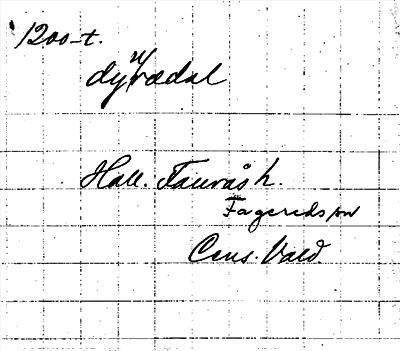 1200-t.
dyrædal
Hall. Faurås h.
Fagereds sn
Cens. Vald.